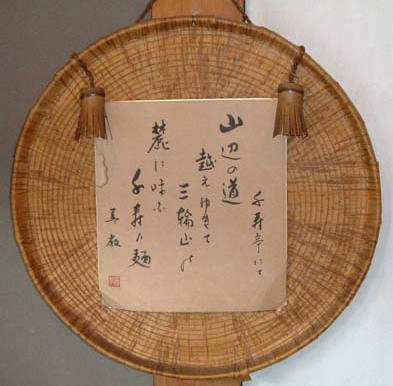 千寿亭にて
山辺の道
越えゆきて
三輪山の
麓に味ふ
千寿乃麺